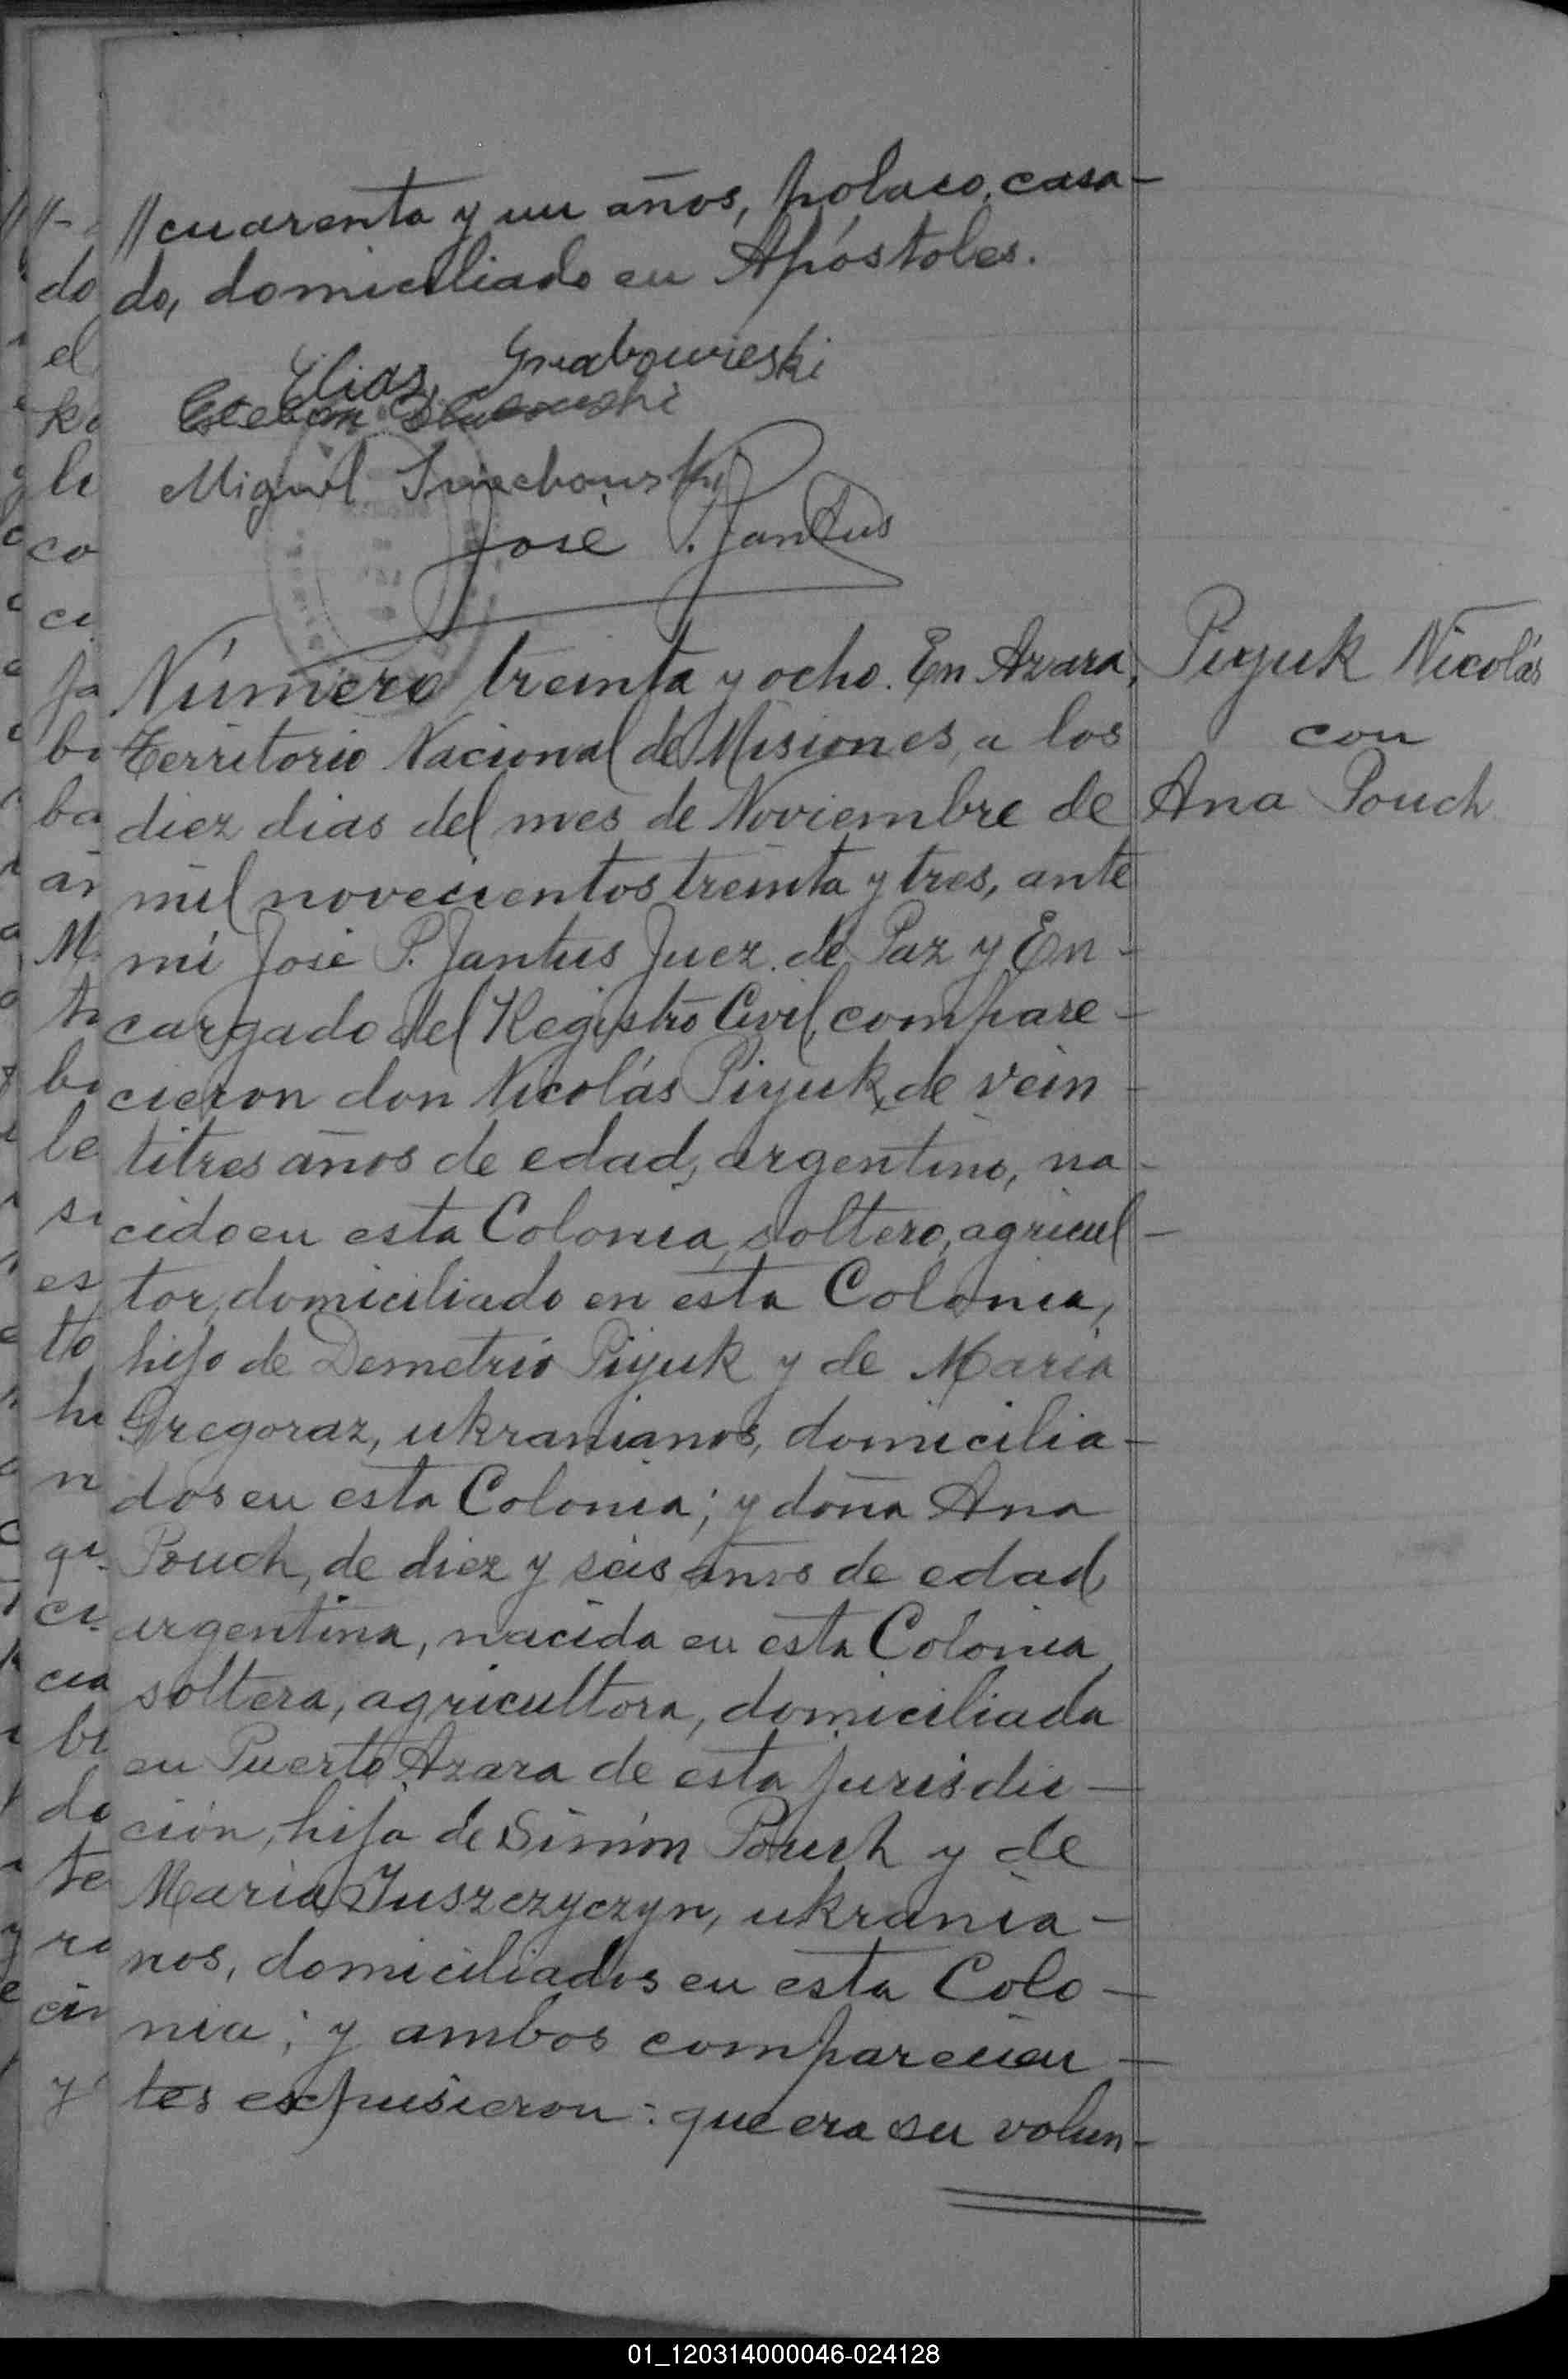 //cuarenta y un años, polaco, casa-
do, domiciliado en Apóstoles.
Elias
Miguel
José P. Jantus
Número treinta y ocho. En Azara,
Piyuk Nicolás
Territorio Nacional de Misiones, a los
con
diez dias del mes de Noviembre de
Ana Pouch
mil novecientos treinta y tres, ante
mi José P. Jantus Juez de Paz y En-
cargado del Registro Civil, compare-
cieron don Nicolás Piyuk, de vein-
titres años de edad, argentino, na-
cido en esta Colonia, soltero, agricul-
tor, domiciliado en esta Colonia,
hijo de Demetrio Piyuk y de María
Gregoraz, ukranianos, domicilia-
dos en esta Colonia; y doña Ana
Pouch, de diez y seis años de edad,
argentina, nacida en esta Colonia
soltera, agricultora, domiciliada
en Puerto Azara de esta jurisdic-
ción, hija de Simón Pouch y de
María Juszczyczyn, ukrania-
nos, domiciliados en esta Colo-
nia; y ambos comparecien-
tes expusieron: que era su volun-
01_120314000046-024128